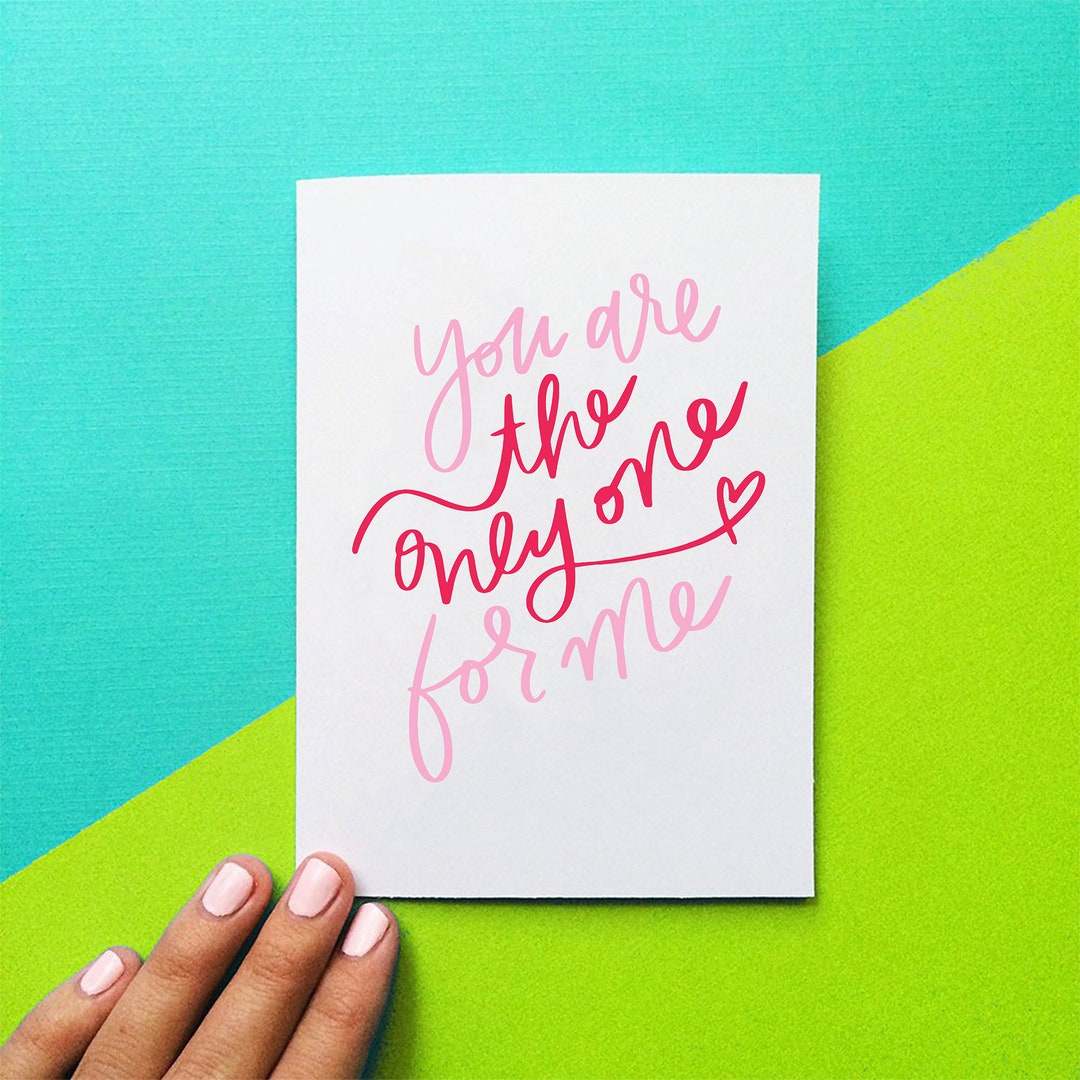 you are
the
only one
for me